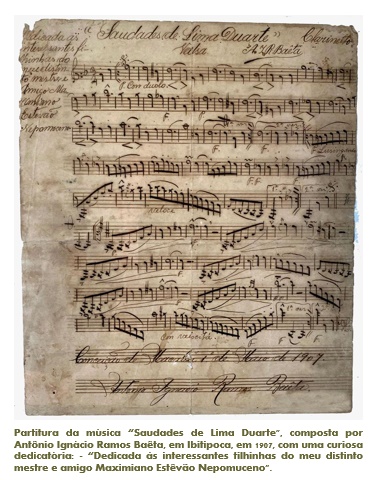 "Saudades de Lima Duarte" Clarinetto
Valsa A.I.R. Baêta
Dedicada ás
interessantes fi
lhinhas do
meu distin
to mestre e
amigo Ma
ximiano
Estevão
Nepomuceno
1907.
Antonio Ignacio Ramos Baêta.
Partitura da música "Saudades de Lima Duarte", composta por
Antônio Ignácio Ramos Baêta, em Ibitipoca, em 1907, com uma curiosa
dedicatória: - "Dedicada ás interessantes filhinhas do meu distinto
mestre e amigo Maximiano Estêvão Nepomuceno".